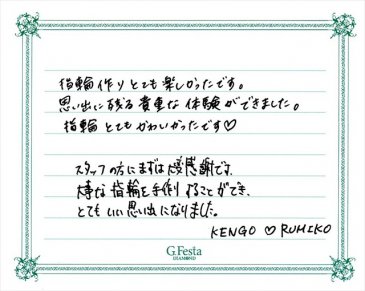 指輪作りとても楽しかったです。
思い出に残る貴重な体験ができました。
指輪とてもかわいかったです♡
スタッフの方にまずは感謝です。
大事な指輪を手作りすることができ、
とてもいい思い出になりました。
KENGO ♡ RUMIKO
G.Festa
DIAMOND